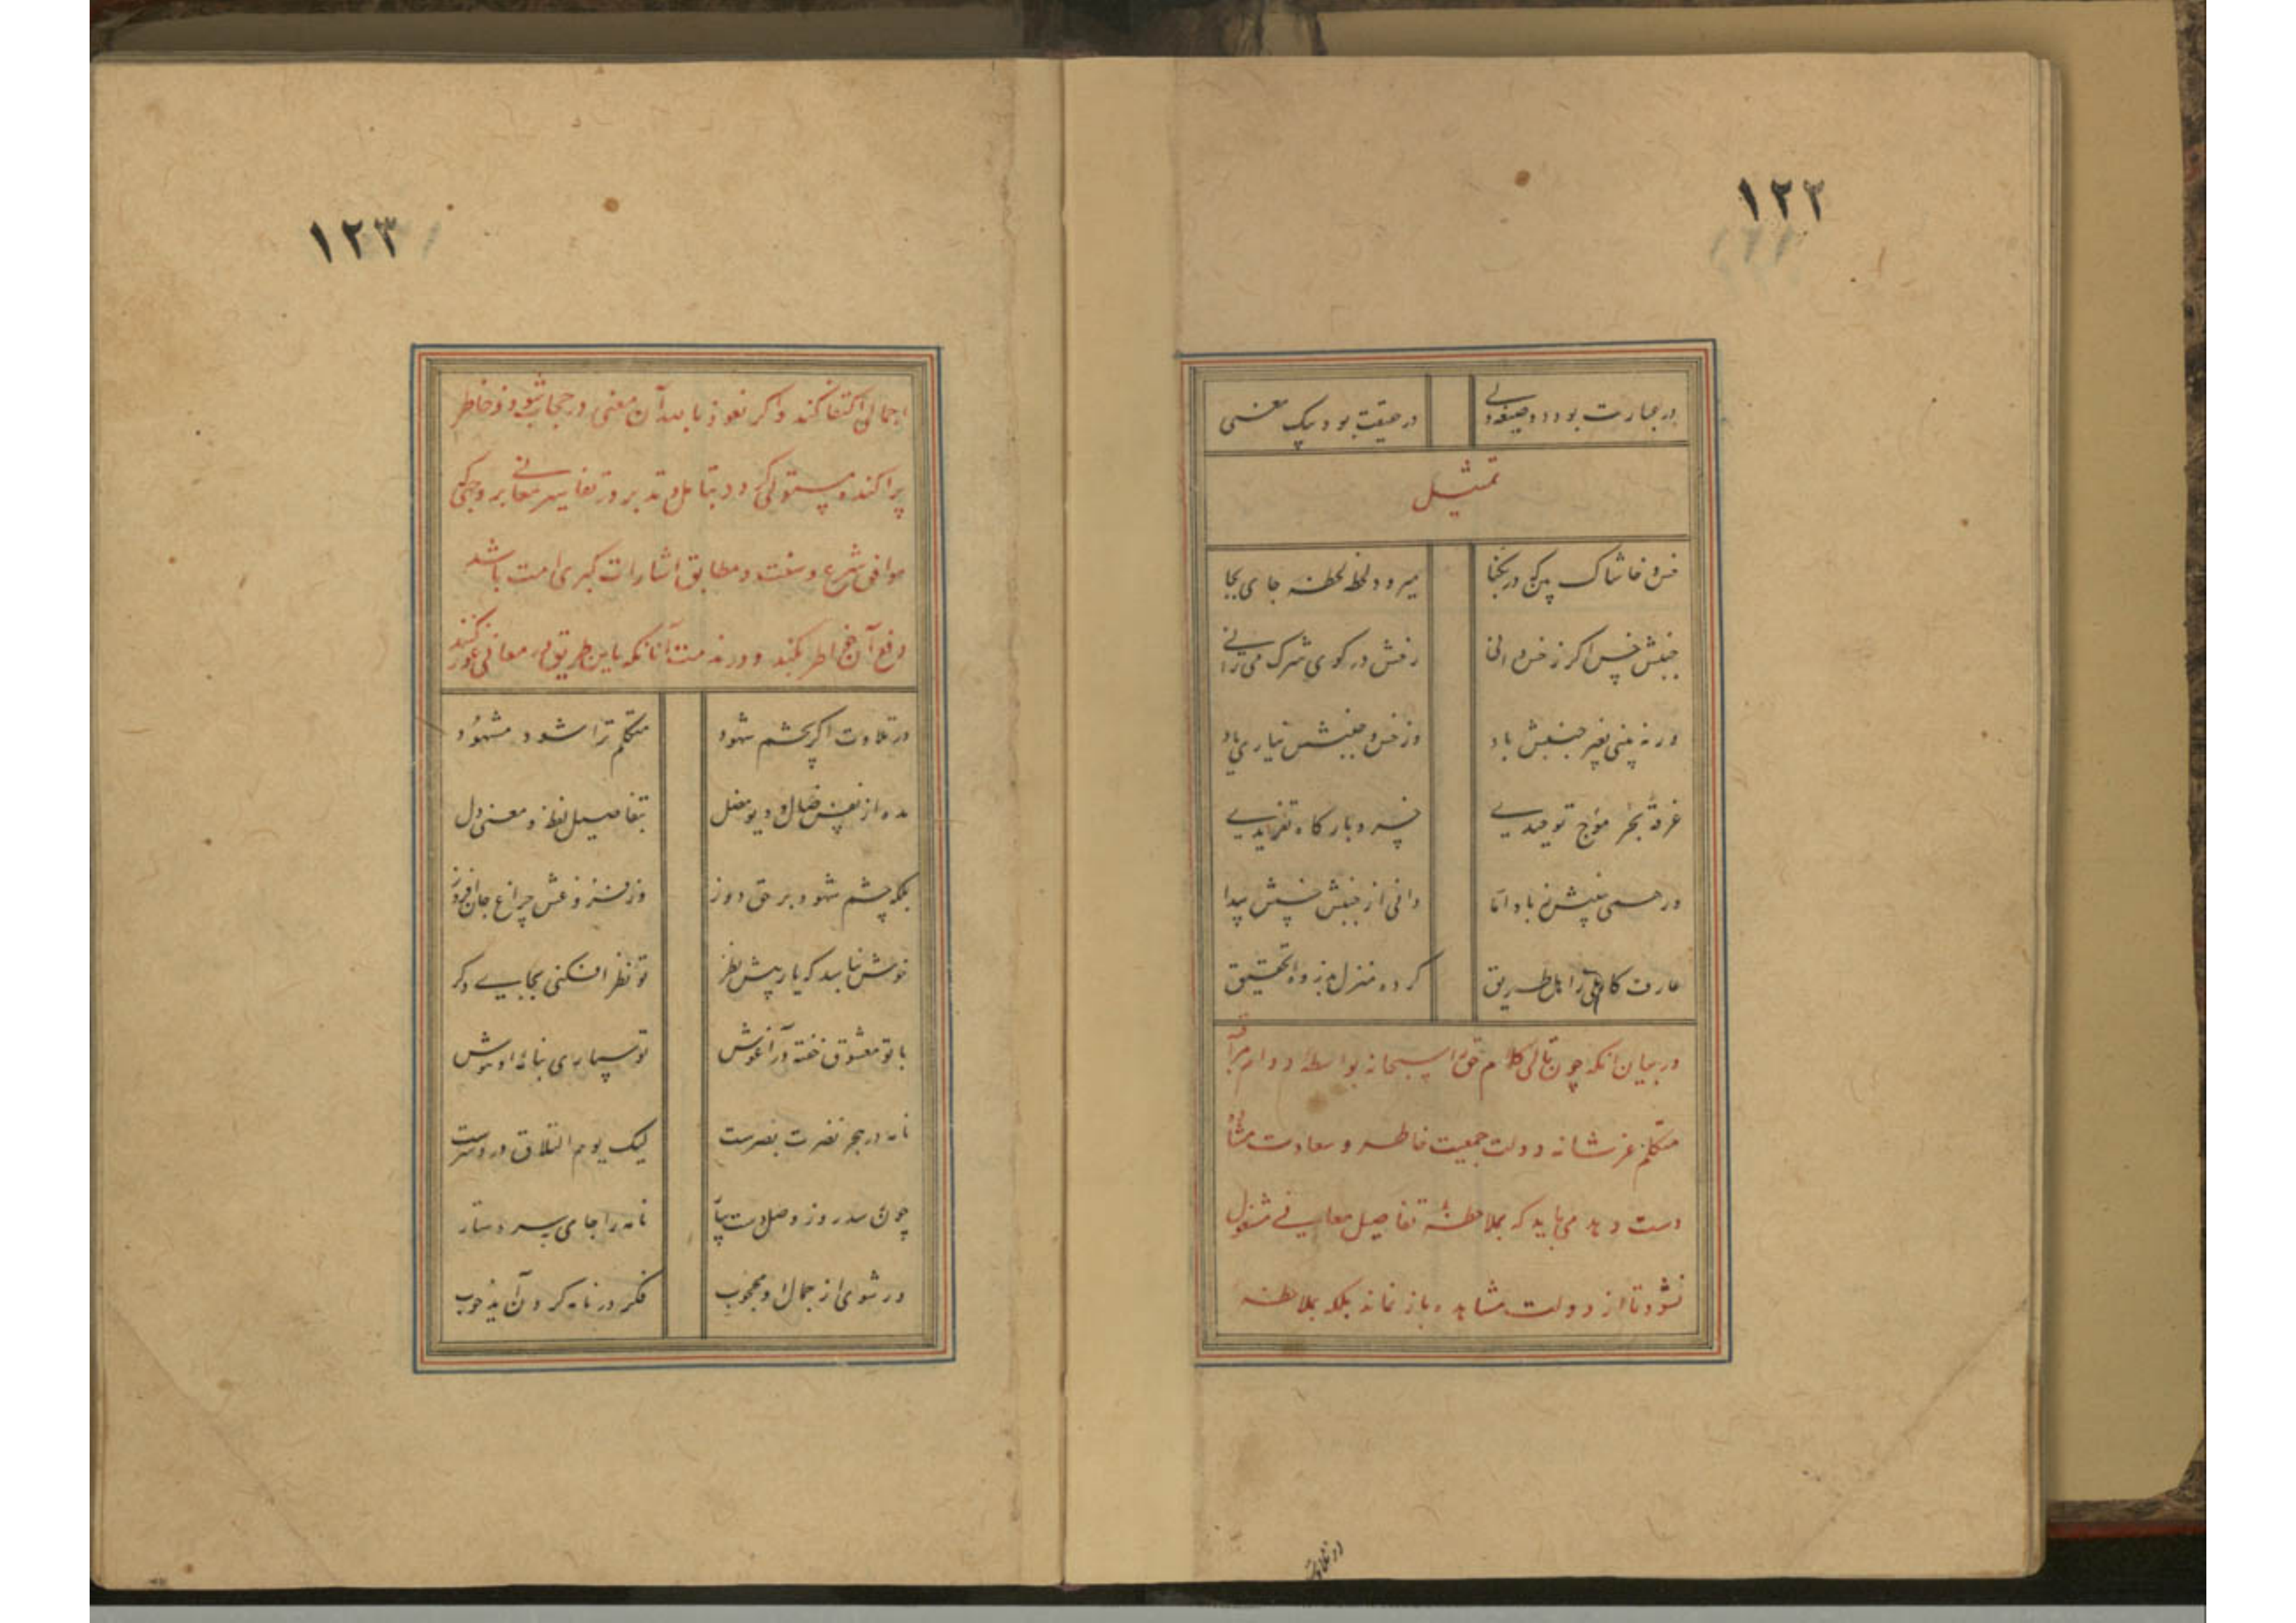 ١٢٢
در عبارت بود دو صیغه ولی در حقیقت بود یک معنی
تمثیل
خس و خاشاک بین که در یکجا میرود لحظه لحظه جای بجا
جنبش خس اگر ز خس دانی رخش در کوی شرک می رانی
ور نه بینی بغیر جنبش باد وز خس و جنبشش نیاری یاد
غرقهٔ بحر موج توحیدی خسرو بارگاه تفریدی
ور همی بینش ز باد اما دانی از جنبش خسش پیدا
عارف کاملی ز اهل طریق کرده منزل بذروهٔ تحقیق
در بیان آنکه چون تالی کلام حق را سبحانه بواسطهٔ دوام مراقبه
متکلم عز شانه دولت جمعیت خاطر و سعادت مشاهده
دست دهد می باید که بملاحظهٔ تفاصیل معانی مشغول
نشود تا از دولت مشاهده باز نماند بلکه بملاحظه
١٢٣
اجمالی اکتفا کند و اگر نعوذ بالله آن معنی در حجاب شود و خاطر
پراکنده مستولی گردد بتامل و تدبر در تفاسیر معانی بر وجهی که
موافق شرع و سنت و مطابق اشارات کبری امت باشد
دفع آن خواطر بکند و در مذمت آنانکه باین طریق در معانی غور نکنند
در تلاوت اگر بچشم شهود متکلم ترا شود مشهود
مده از نفس ضال و دیو مضل بتفاصیل لفظ و معنی دل
بلکه چشم شهود بر حق دوز وز فروغش چراغ جان افروز
خوش نباشد که یار پیش نظر تو نظر افکنی بجایی دگر
با تو معشوق خفته در آغوش تو سپاری بنامهٔ او هوش
نامه در هجر نضرت بصرست لیک یوم التلاق درد سرست
چون رسد روز وصل دست بیار نامه را جای بر سر دستار
ور شوی از جمال او محجوب فکر در نامه کردن آید خوب